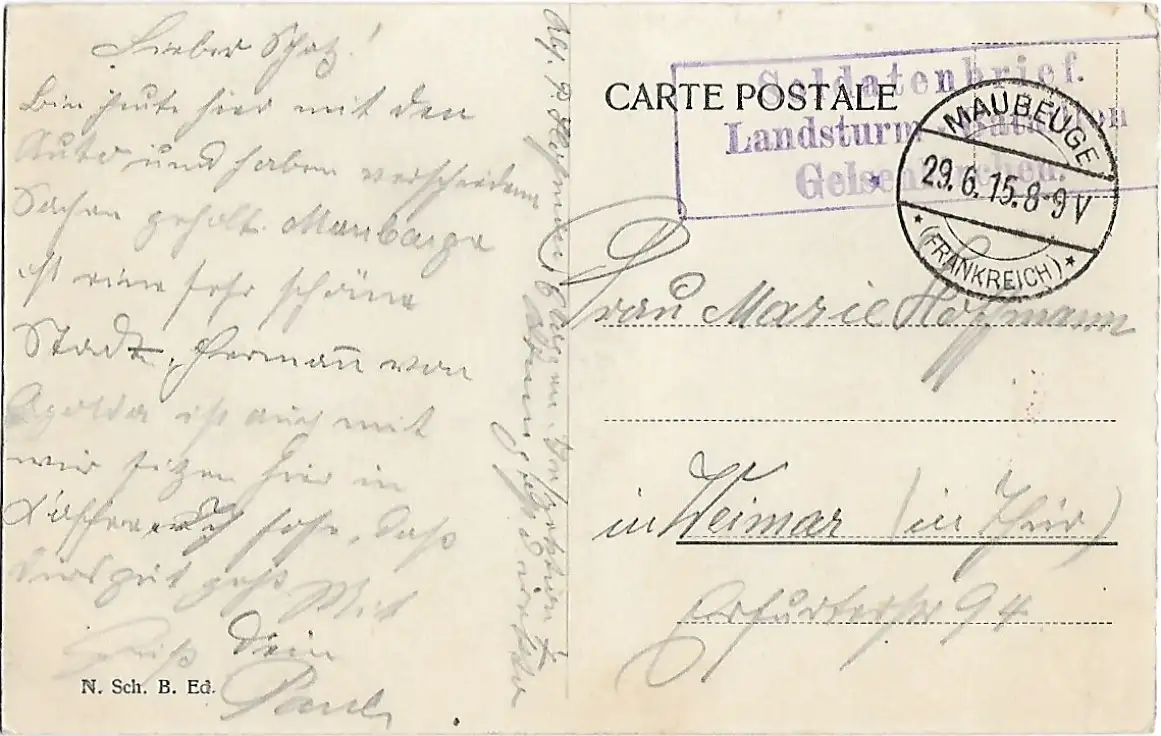 Lieber Schatz!
Bin heute hier mit den
Auto und haben verschiedene
Sachen geholt. Maubeuge
ist eine sehr schöne
Stadt, Hermann von
Apolda ist auch mit
wir sitzen hier in
Ich hoffe, daß
Dirs gut geht Mit
Gruß Dein
Paul
N. Sch. B. Ed.
CARTE POSTALE
Soldatenbrief.
Landsturm-Bataillon
Gelsenkirchen.
MAUBEUGE
29.6.15.8-9V
(FRANKREICH)
Frau Marie Hoffmann
in Weimar (in Thür)
Erfurterstr 94